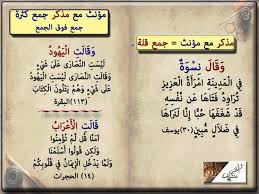 مؤنث مع مذكر جمع كثرة
جمع فوق الجمع
وَقَالَتِ الْيَهُودُ
لَيْسَتِ النَّصَارَى عَلَى شَيْءٍ
وَقَالَتِ النَّصَارَى لَيْسَتِ الْيَهُودُ
عَلَى شَيْءٍ وَهُمْ يَتْلُونَ الْكِتَابَ
(١١٣) البقرة
قَالَتِ الْأَعْرَابُ
آمَنَّا قُل لَّمْ تُؤْمِنُوا
وَلَكِن قُولُوا أَسْلَمْنَا
وَلَمَّا يَدْخُلِ الْإِيمَانُ فِي قُلُوبِكُمْ
(١٤) الحجرات
مذكر مع مؤنث = جمع قلة
وَقَالَ نِسْوَةٌ
فِي الْمَدِينَةِ امْرَأَةُ الْعَزِيزِ
تُرَاوِدُ فَتَاهَا عَن نَّفْسِهِ
قَدْ شَغَفَهَا حُبًّا إِنَّا لَنَرَاهَا
فِي ضَلَالٍ مُّبِينٍ (٣٠) يوسف